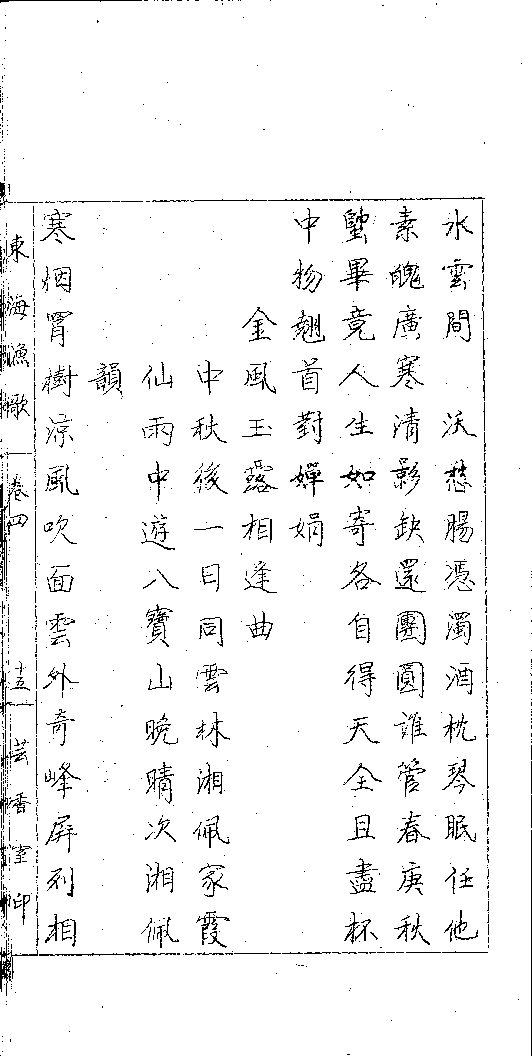 水雲間　沃愁腸憑濁酒枕琴眠任他
素魄廣寒清影缺還團圓誰管春庚秋
蟹畢竟人生如寄各自得天全且盡杯
中物翹首對嬋娟
金風玉露相逢曲
中秋後一日同雲林湘佩家霞
仙雨中遊八寶山晚晴次湘佩
韻
寒烟罥樹涼風吹面雲外奇峰屏列相
東海漁歌　卷四　十五　芸香堂印